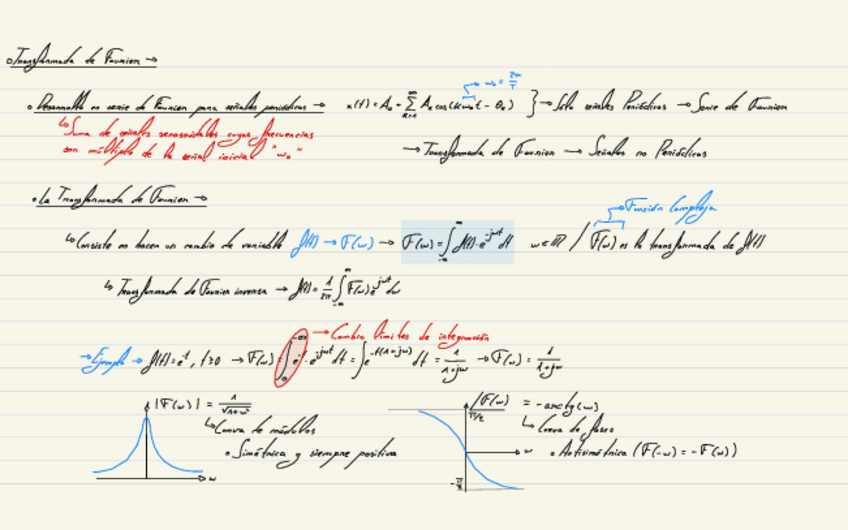 ○Transformada de Fourier →
• Desarrollo en serie de Fourier para señales periódicas → x(t) = A₀ + ∑ Aₖ cos(kω₀t - θₖ) } → Sólo señales Periódicas → Serie de Fourier
→ ω₀ = 2π/T
↳ Suma de señales senosoidales cuyas frecuencias
son múltiplo de la señal inicial "ω₀"
→ Transformada de Fourier → Señales no Periódicas
• La Transformada de Fourier →
→ Función Compleja
↳ Consiste en hacer un cambio de variable f(t) → F(ω) → F(ω) = ∫_{-∞}^{∞} f(t)·e^{-jωt} dt ω∈ℝ / F(ω) es la transformada de f(t)
↳ Transformada de Fourier inversa → f(t) = 1/2π ∫_{-∞}^{∞} F(ω) e^{jωt} dω
→ Cambio límites de integración
→ Ejemplo → f(t) = e^{-t}, t≥0 → F(ω) = ∫_0^{+∞} e^{-t}·e^{-jωt} dt = ∫ e^{-t(1+jω)} dt = 1/(1+jω) → F(ω) = 1/(1+jω)
|F(ω)| = 1/√(1+ω²)
↳ Curva de módulos
• Simétrica y siempre positiva
ω
/F(ω) = -arctg(ω)
π/2
↳ Curva de fases
• Antisimétrica (F(-ω) = -F(ω))
ω
-π/2